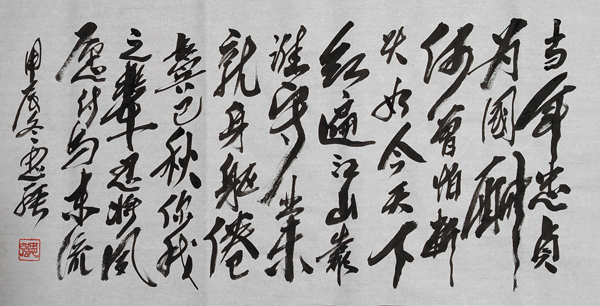 当年忠贞
为國酬
何曾怕断
头如今天下
红遍江山靠
谁守业未
就身躯倦
鬓已秋你我
之辈忍将夙
愿付与东流
甲辰冬